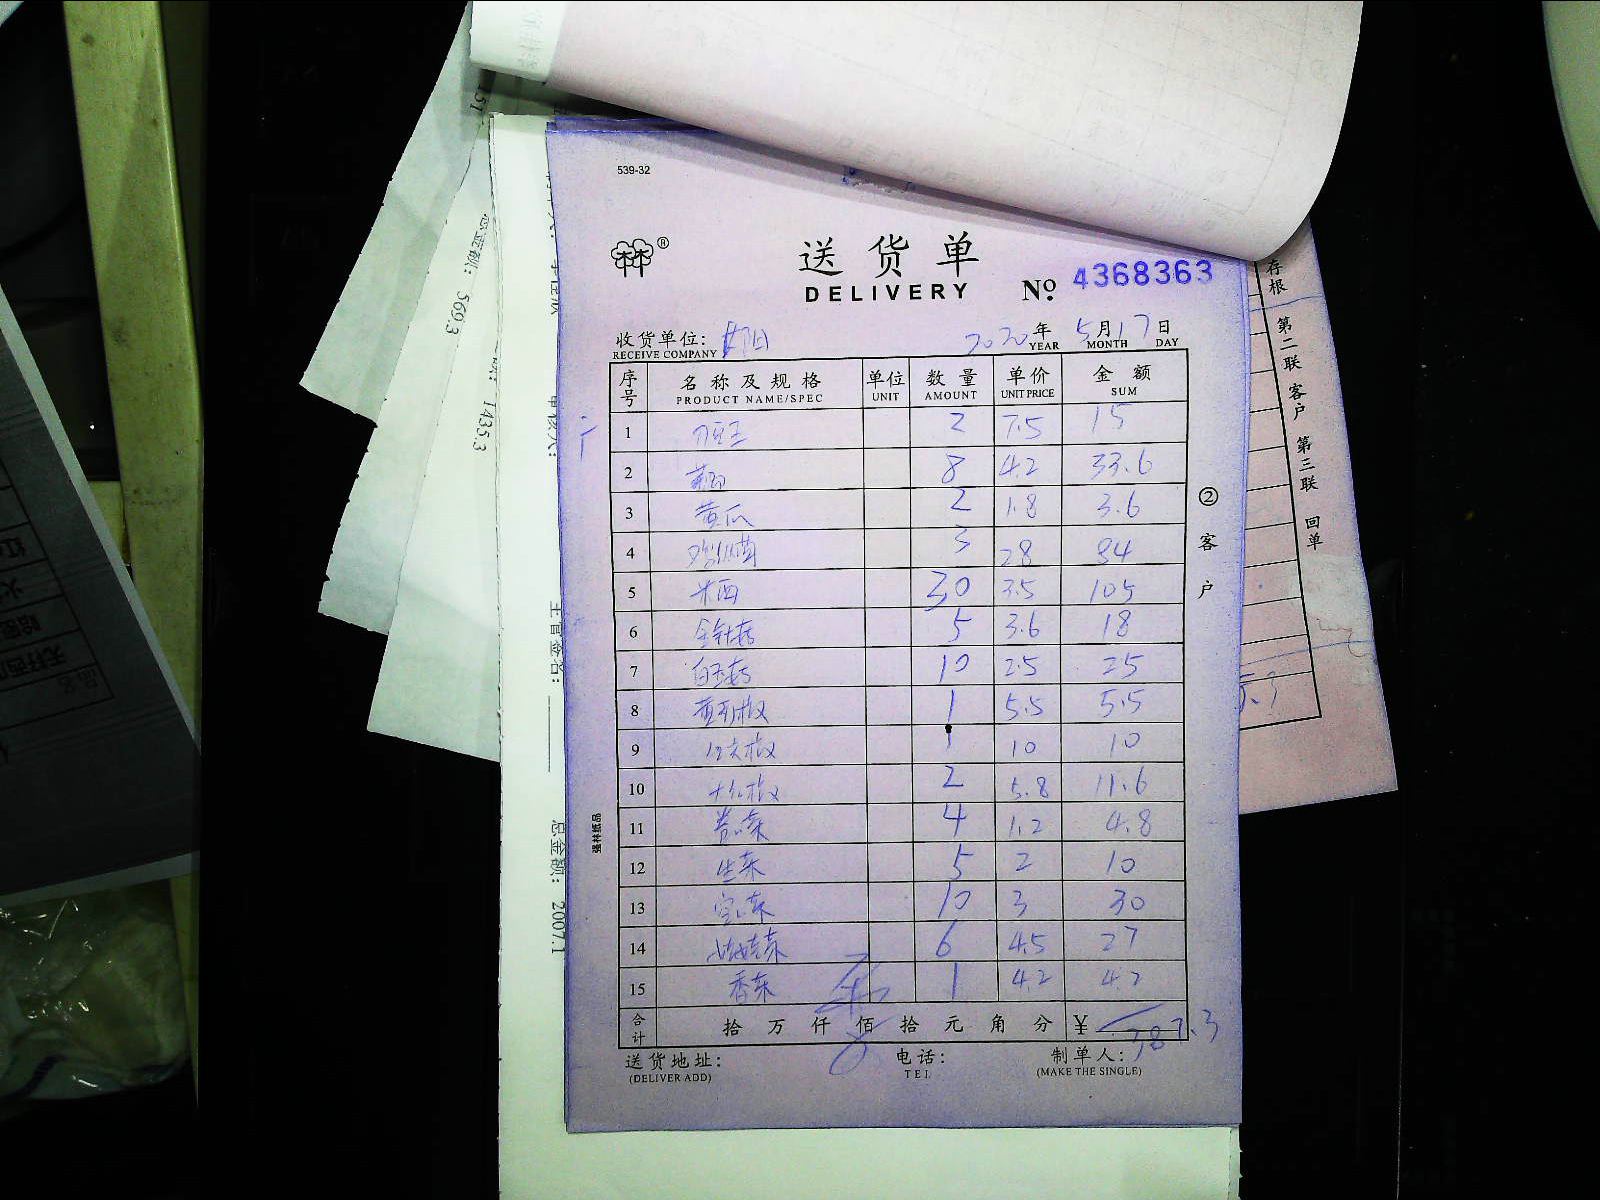 539-32
送货单
DELIVERY No. 4368363
收货单位:
RECEIVE COMPANY
2020年5月17日
YEAR MONTH DAY
序号 名称及规格 单位 数量 单价 金额
PRODUCT NAME/SPEC UNIT AMOUNT UNIT PRICE SUM
1 刀豆王 2 7.5 15
2 8 4.2 33.6
3 黄瓜 2 1.8 3.6
4 鸡枞菌 3 28 84
5 30 3.5 105
6 金针菇 5 3.6 18
7 白玉菇 10 2.5 25
8 1 5.5 5.5
9 1 10 10
10 2 5.8 11.6
11 4 1.2 4.8
12 生菜 5 2 10
13 10 3 30
14 娃娃菜 6 4.5 27
15 香菜 1 4.2 4.2
合计 拾万仟佰拾元角分 ¥ 387.3
送货地址: 电话: 制单人:
(DELIVER ADD) TEL (MAKE THE SINGLE)
② 客户
强林纸品
存根 第二联 客户 第三联 回单
569.3
1435.3
总金额: 2007.1
主管签名: